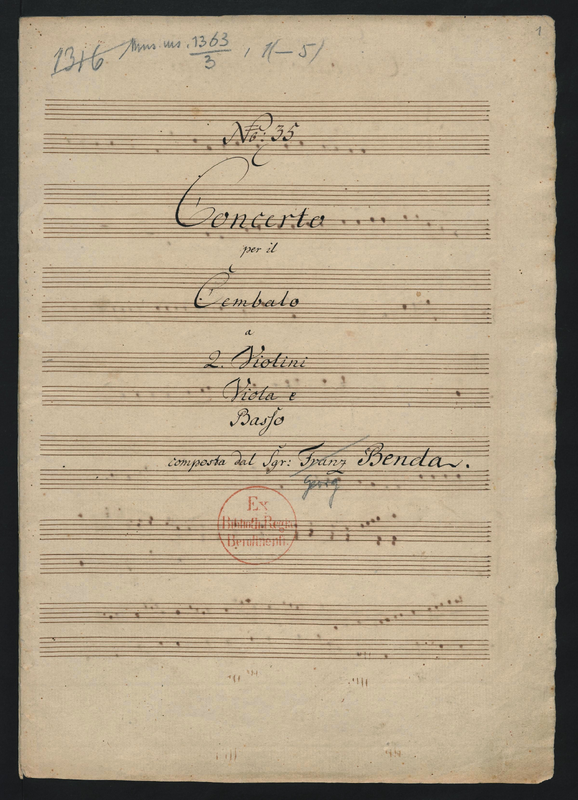 1316. Mus. ms. 1363/3, 1(-5)
1
No: 35
Concerto
per il
Cembalo
a
2. Violini
Viola e
Basso
composta dal Sgr: Franz Benda.
Georg
Ex
Biblioth. Regia
Berolinensi.